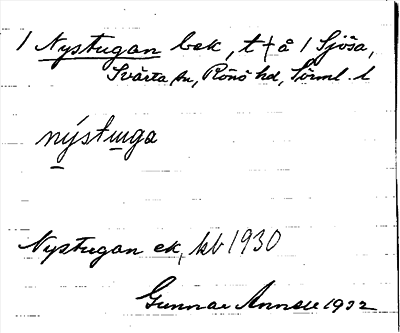 1 Nystugan bek, t f å 1 Sjösa,
Svärta sn, Rönö hd, Sörml. l
nýstuga
Nystugan ek, kb 1930
Gunnar 1932